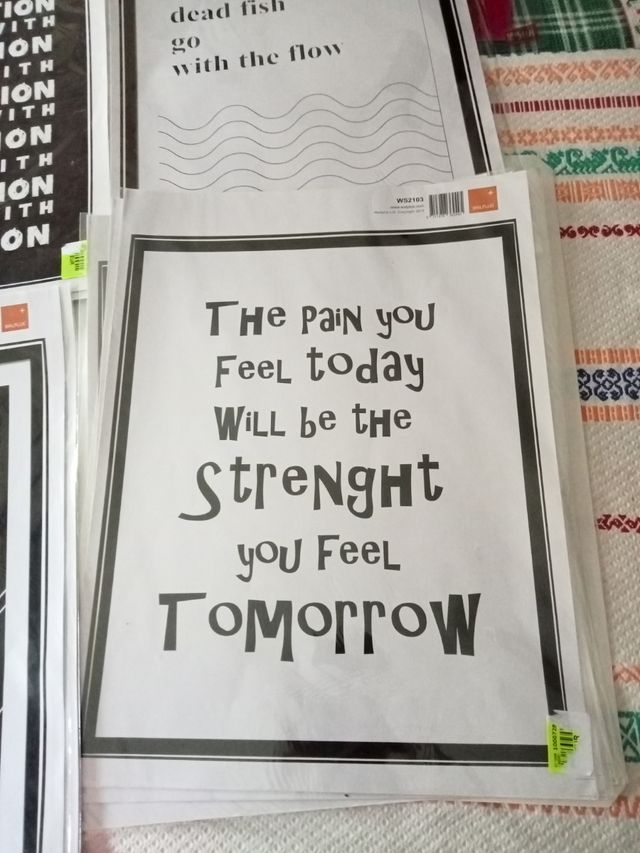 ION
WITH
ION
WITH
ION
WITH
ION
WITH
ION
WITH
ON
dead fish
go
with the flow
WS2103
WALPLUS
WALPLUS
THe PaiN you
FeeL today
WiLL be tHe
StreNgHt
you FeeL
ToMorroW
1000728